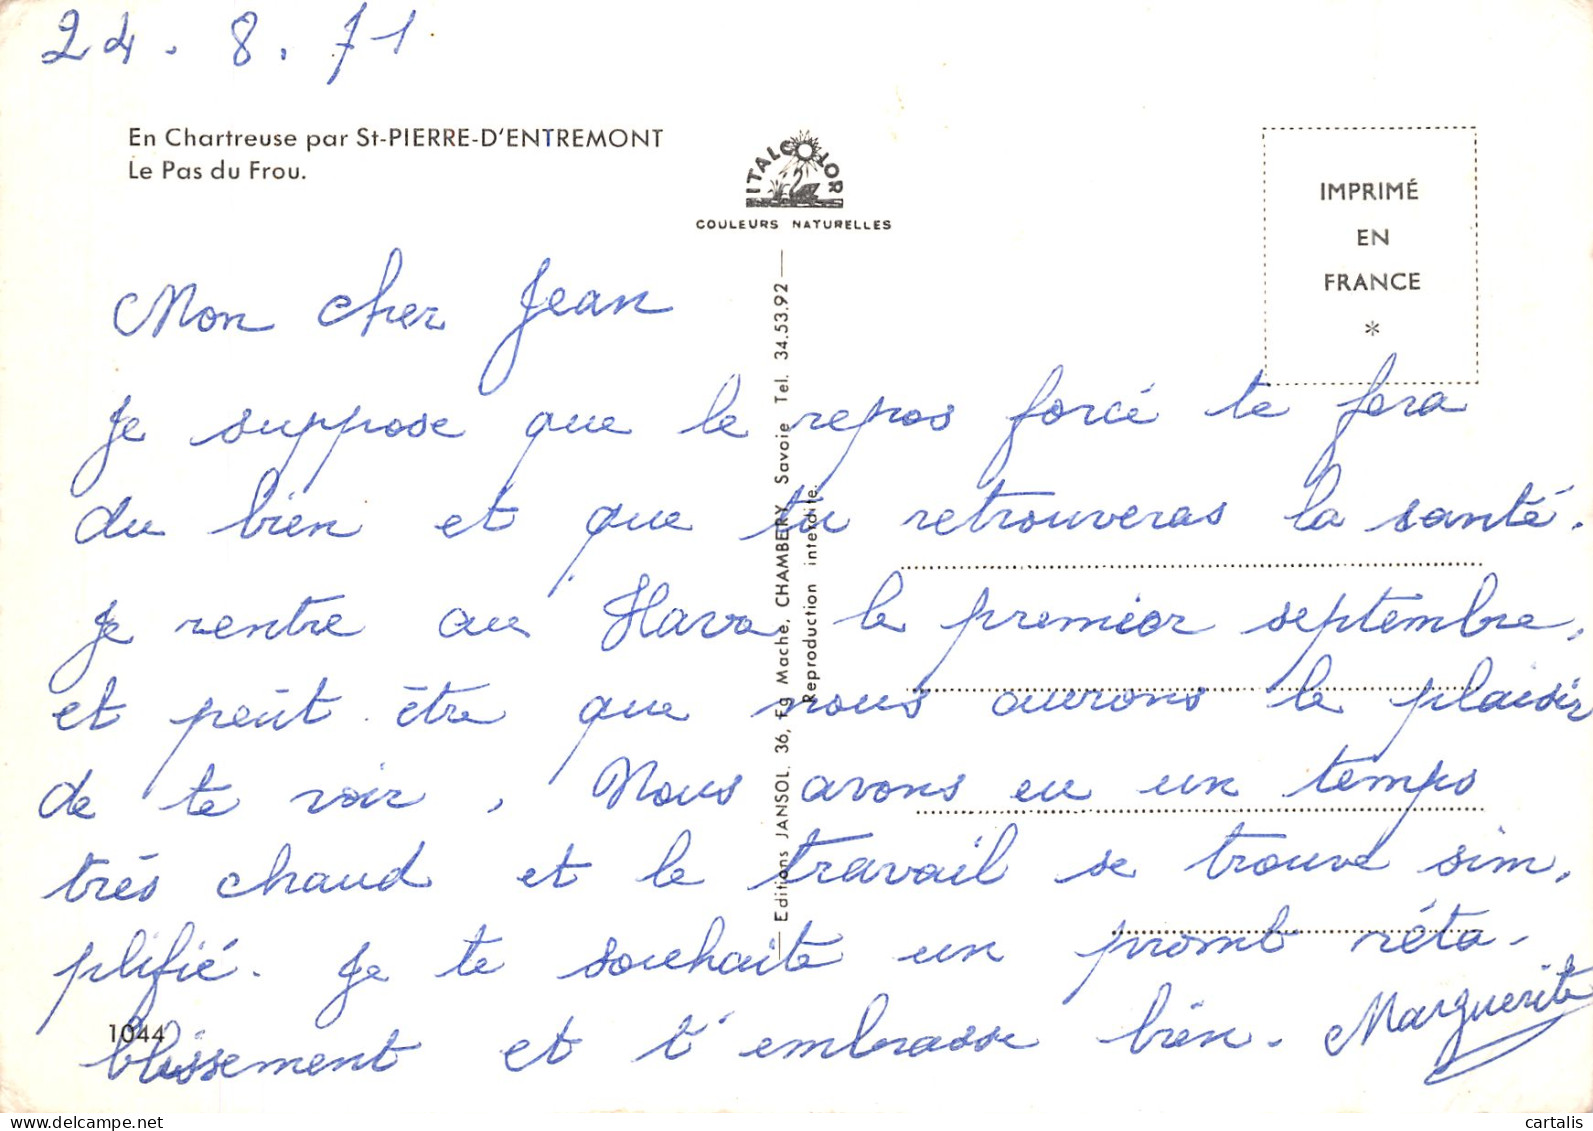 24.8.71
En Chartreuse par St-PIERRE-D'ENTREMONT
Le Pas du Frou.
ITALCOLOR
COULEURS NATURELLES
IMPRIMÉ
EN
FRANCE
*
Mon cher Jean
Je suppose que le repos forcé te fera
du bien et que tu retrouveras la santé.
Je rentre au Hava le premier septembre,
et peut être que nous aurons le plaisir
de te voir. Nous avons eu un temps
très chaud et le travail se trouve sim-
plifié. Je te souhaite un promt réta-
blissement et t'embrasse bien. Marguerite
1044
Editions JANSOL, 36, Fg Maché, CHAMBERY Savoie Tel. 34.53.92
Reproduction interdite.
cartalis